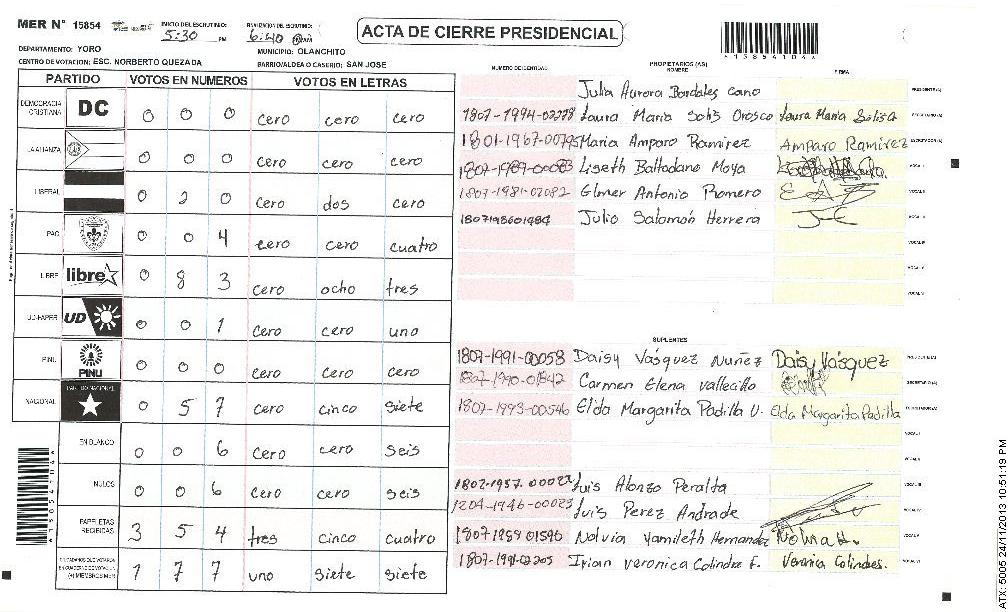 MER N° 15854
INICIO DEL ESCRUTINIO: 5:30 PM
FINALIZACION DEL ESCRUTINIO: 6:40
ACTA DE CIERRE PRESIDENCIAL
DEPARTAMENTO: YORO
MUNICIPIO: OLANCHITO
CENTRO DE VOTACION: ESC. NORBERTO QUEZADA
BARRIO/ALDEA O CASERIO: SAN JOSE
A15854041
PARTIDO VOTOS EN NUMEROS VOTOS EN LETRAS
DEMOCRACIA CRISTIANA DC 0 0 0 cero cero cero
LA ALIANZA 0 0 0 cero cero cero
LIBERAL 0 2 0 cero dos cero
PAC 0 0 4 cero cero cuatro
LIBRE libre 0 8 3 cero ocho tres
UD-FAPER UD 0 0 1 cero cero uno
PINU PINU 0 0 0 cero cero cero
NACIONAL PARTIDO NACIONAL 0 5 7 cero cinco siete
EN BLANCO 0 0 6 cero cero seis
NULOS 0 0 6 cero cero seis
PAPELETAS RECIBIDAS 3 5 4 tres cinco cuatro
CIUDADANOS QUE VOTARON EN CUADERNO DE VOTACION (+) MIEMBROS MER 1 7 7 uno siete siete
NUMERO DE IDENTIDAD PROPIETARIOS (AS) NOMBRE FIRMA
Julia Aurora Bardales cano PRESIDENTE(A)
1807-1994-02278 Laura Maria Solis Orosco Laura Maria Solisa SECRETARIO(A)
1801-1967-00795 Maria Amparo Ramirez Amparo Ramirez ESCRUTADOR(A)
1807-1989-00083 Liseth Baltodano Moya VOCAL I
1807-1981-02082 Elmer Antonio Romero VOCAL II
1807198601984 Julio Salomón Herrera VOCAL III
VOCAL IV
VOCAL V
VOCAL VI
SUPLENTES
1807-1991-00058 Daisy Vásquez Nuñez Daisy Vásquez PRESIDENTE(A)
1807-1990-01842 Carmen Elena Vallecillo SECRETARIO(A)
1807-1993-00546 Elda Margarita Padilla U. Elda Margarita Padilla ESCRUTADOR(A)
VOCAL I
VOCAL II
Luis Alonzo Peralta VOCAL III
1204-1946-00023 Luis Perez Andrade VOCAL IV
1807 1959 01596 Nolvia Yamileth Hernandez VOCAL V
Irian veronica Colindre F. Veronica Colindres. VOCAL VI
ATX: 5005 24/11/2013 10:51:19 PM